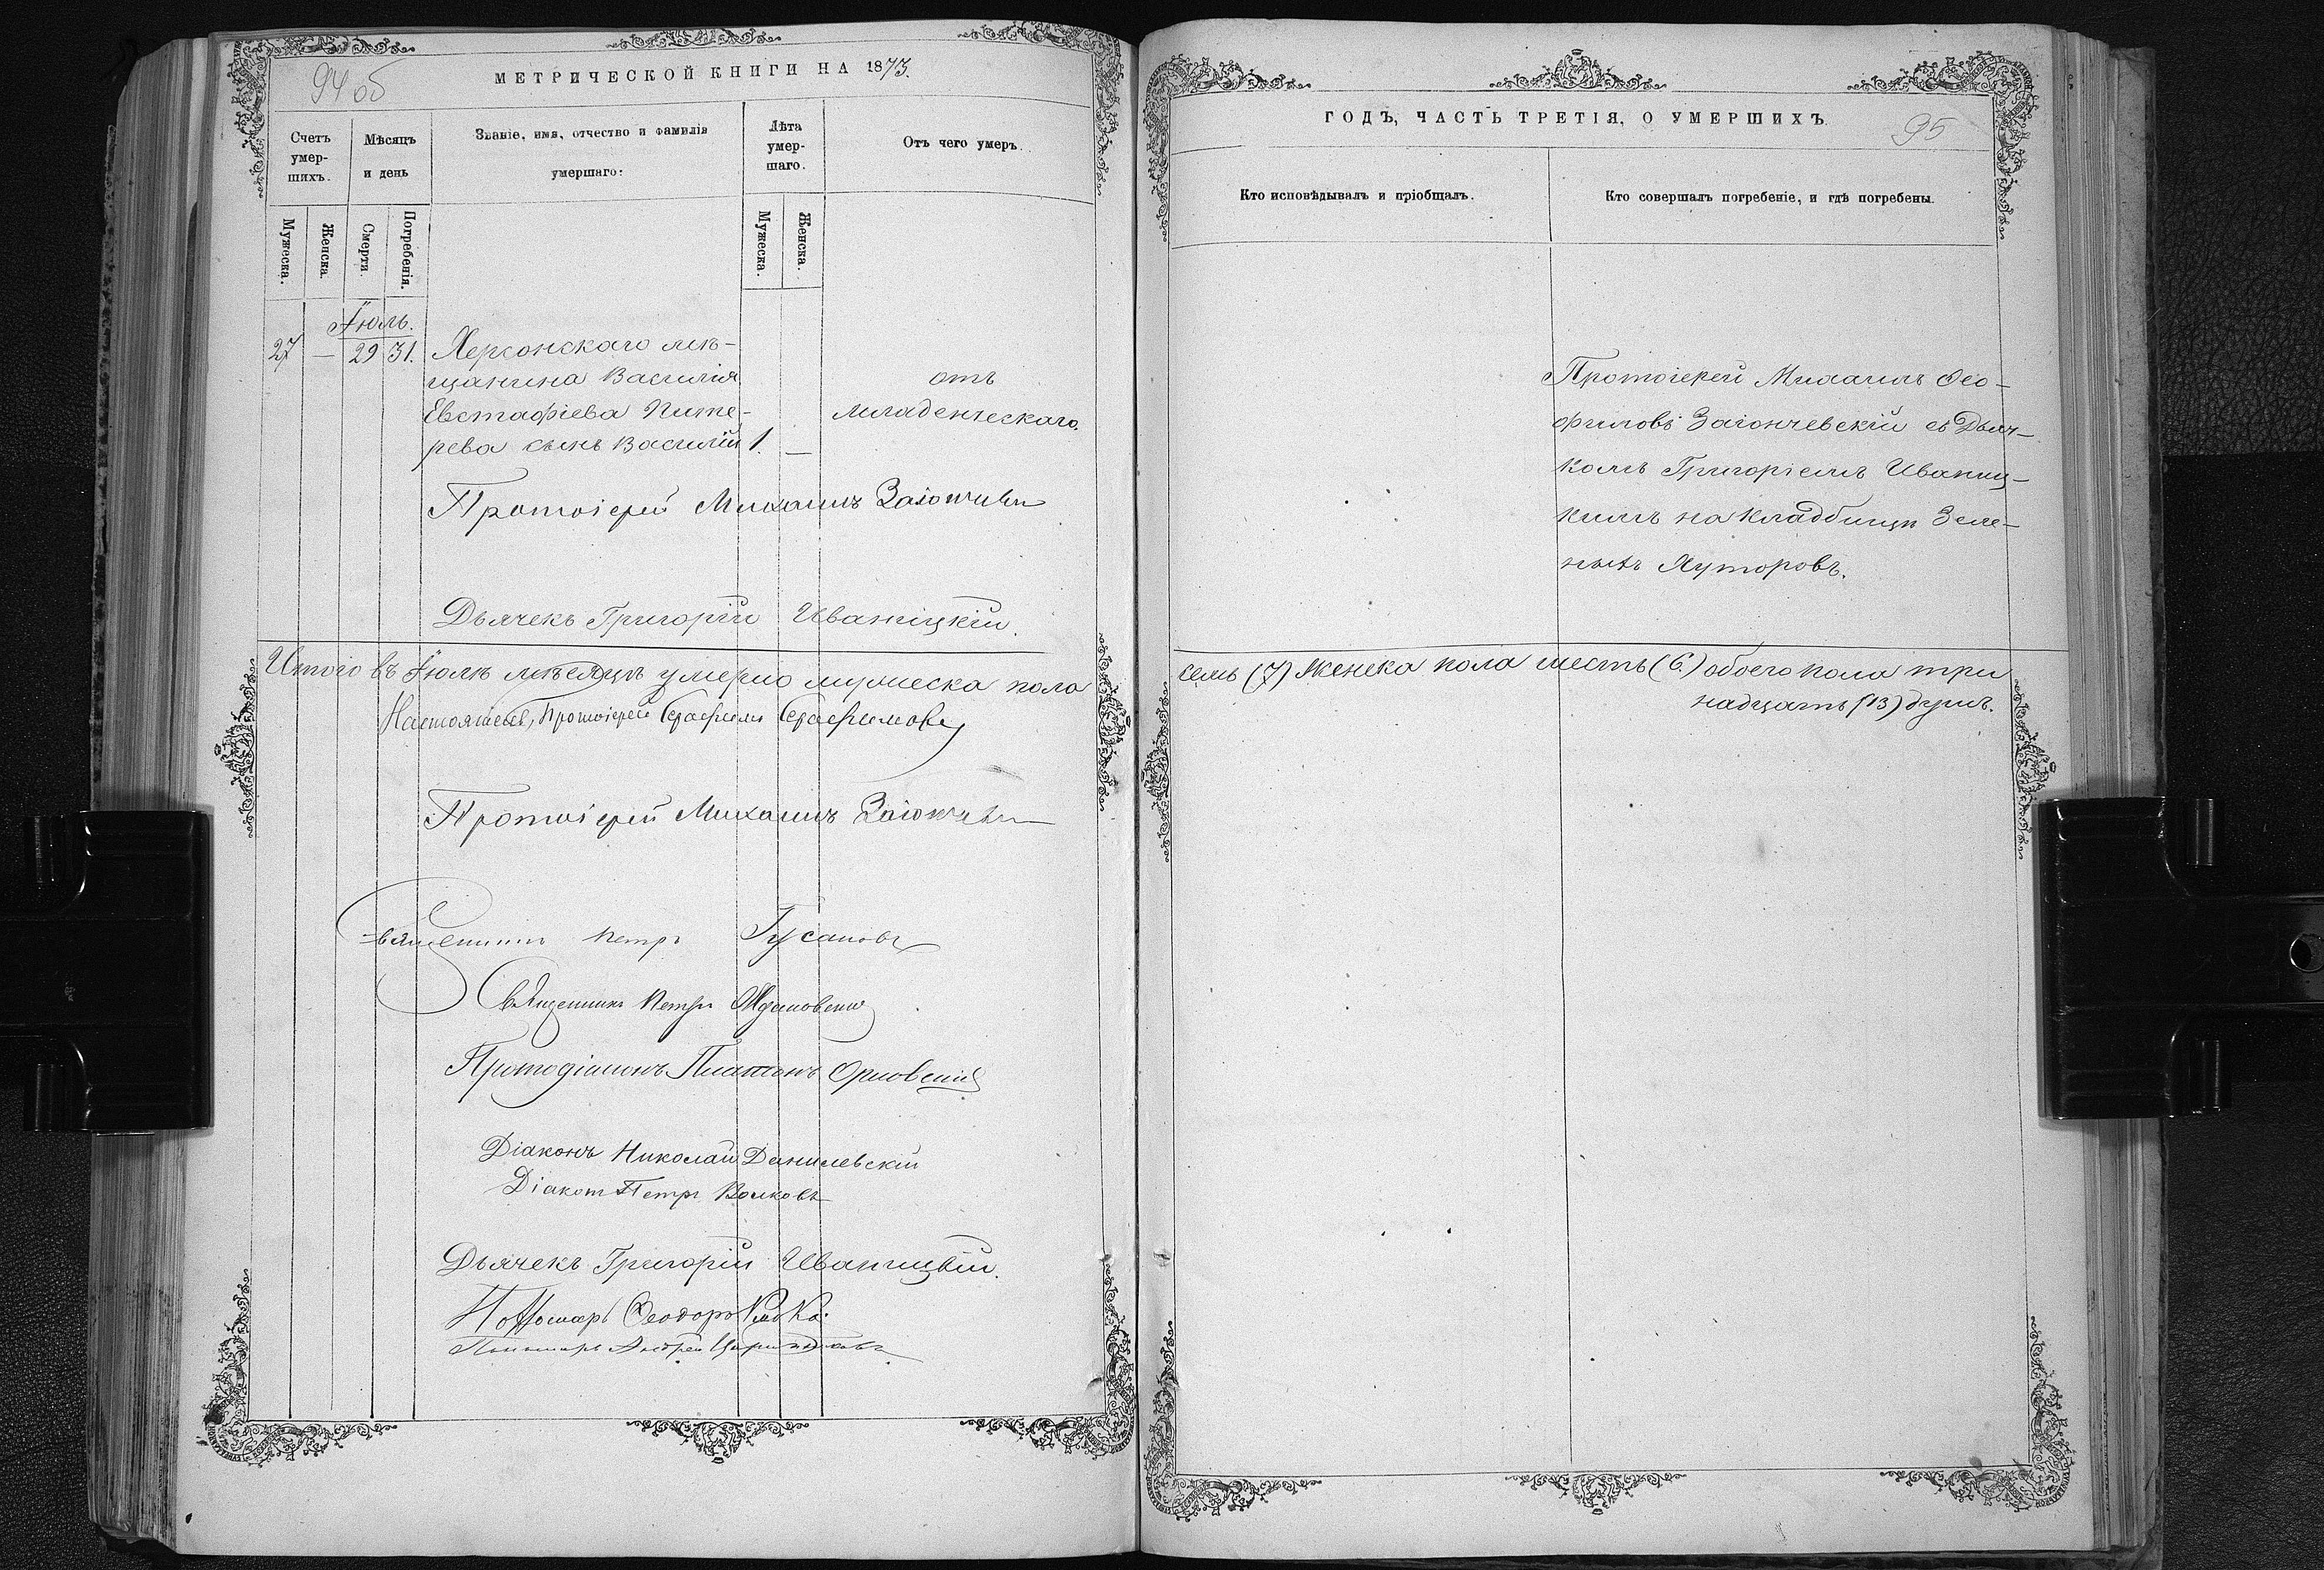 94 об
МЕТРИЧЕСКОЙ КНИГИ НА 1873.
Счетъ умер-шихъ.
Мѣсяцъ и день
Званіе, имя, отчество и фамилія умершаго:
Лѣта умер-шаго.
Отъ чего умеръ.
Мужеска.
Женска.
Смерти.
Погребенія.
Мужеска.
Женска.
Іюль.
27 — 29 31. Херсонскаго мѣ-
щанина Василія
Евстафіева Пите-
рева сынъ Василій 1. —
отъ
младенческаго.
Протоіерей Михаилъ
Дьячекъ Григорій Иваницкій.
Итого въ Іюлѣ мѣсяцѣ умерло мужеска пола
Настоятель, Протоіерей Серафимъ Серафимовъ
Протоіерей Михаилъ
Священникъ Петръ Гусаковъ
Священникъ Петръ Ждановскій
Протодіаконъ Платонъ Орловскій
Діаконъ Николай Данилевскій
Діаконъ Петръ Волковъ
Дьячекъ Григорій Иваницкій.
Пономарь Ѳеодоръ
Пономарь Андрей
ГОДЪ, ЧАСТЬ ТРЕТІЯ, О УМЕРШИХЪ.
95
Кто исповѣдывалъ и пріобщалъ.
Кто совершалъ погребеніе, и гдѣ погребены.
Протоіерей Михаилъ Ѳео-
филовъ Заіончевскій съ Дьяч-
комъ Григоріемъ Иваниц-
кимъ на кладбищѣ Зеле-
ныхъ Хуторовъ.
семь (7) женска пола шесть (6.) обоего пола три
надцать (13) душъ.